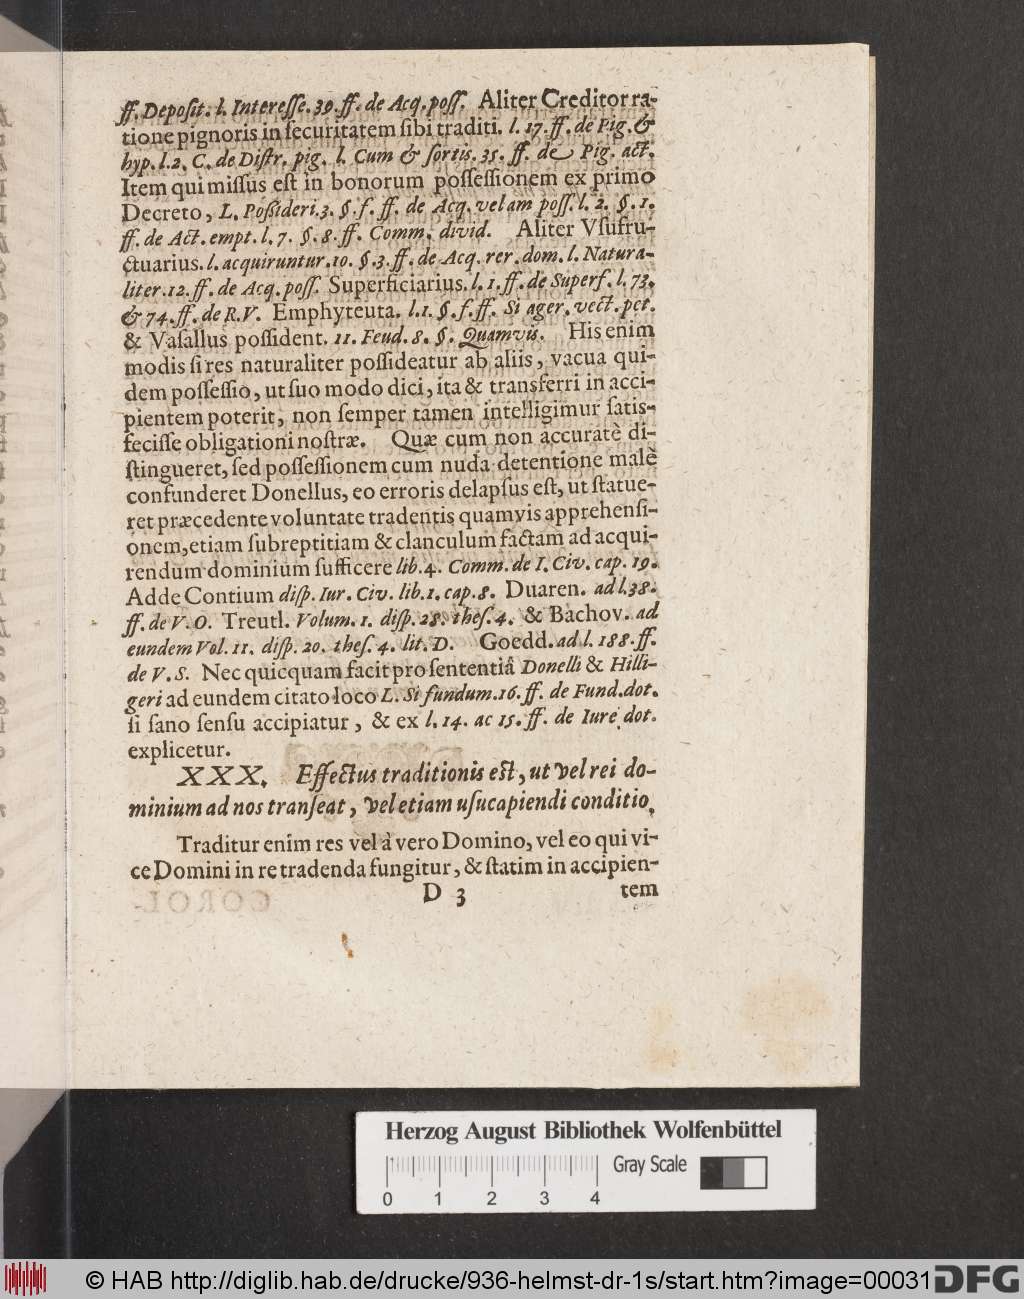 ff. Deposit. l. Interesse. 39. ff. de Acq. poss. Aliter Creditor ra-
tione pignoris in securitatem sibi traditi. l. 17. ff. de Pig. &
hyp. l. 2. C. de Distr. pig. l. Cum & sortis. 35. ff. de Pig. act.
Item qui missus est in bonorum possessionem ex primo
Decreto, L. Possideri. 3. §. f. ff. de Acq. vel am poss. l. 2. §. 1.
ff. de Act. empt. l. 7. §. 8. ff. Comm. divid. Aliter Vsufru-
ctuarius. l. acquiruntur. 10. §. 3. ff. de Acq. rer. dom. l. Natura-
liter. 12. ff. de Acq. poss. Superficiarius. l. 1. ff. de Superf. l. 73.
& 74. ff. de R. V. Emphyteuta. l. 1. §. f. ff. Si ager. vect. pet.
& Vasallus possident. 11. Feud. 8. §. Quamvis. His enim
modis si res naturaliter possideatur ab aliis, vacua qui-
dem possessio, ut suo modo dici, ita & transferri in acci-
pientem poterit, non semper tamen intelligimur satis-
fecisse obligationi nostræ. Quæ cum non accuratè di-
stingueret, sed possessionem cum nuda detentione malè
confunderet Donellus, eo erroris delapsus est, ut statue-
ret præcedente voluntate tradentis quamvis apprehensi-
onem, etiam subreptitiam & clanculum factam ad acqui-
rendum dominium sufficere lib. 4. Comm. de I. Civ. cap. 19.
Adde Contium disp. Iur. Civ. lib. 1. cap. 8. Duaren. ad l. 38.
ff. de V. O. Treutl. Volum. 1. disp. 28. thes. 4. & Bachov. ad
eundem Vol. 11. disp. 20. thes. 4. lit. D. Goedd. ad l. 188. ff.
de V. S. Nec quicquam facit pro sententiâ Donelli & Hilli-
geri ad eundem citato loco L. Si fundum. 16. ff. de Fund. dot.
si sano sensu accipiatur, & ex l. 14. ac 15. ff. de Iure dot.
explicetur.
XXX. Effectus traditionis est, ut vel rei do-
minium ad nos transeat, vel etiam usucapiendi conditio.
Traditur enim res vel à vero Domino, vel eo qui vi-
ce Domini in re tradenda fungitur, & statim in accipien-
D 3 tem
Herzog August Bibliothek Wolfenbüttel
Gray Scale
0 1 2 3 4
© HAB http://diglib.hab.de/drucke/936-helmst-dr-1s/start.htm?image=00031
DFG